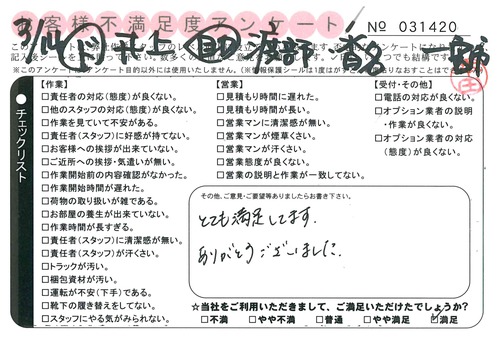 お客様不満足度アンケート
№ 031420
チェックリスト
【作業】
□責任者の対応(態度)が良くない。
□他のスタッフの対応(態度)が良くない。
□作業を見ていて不安がある。
□責任者(スタッフ)に好感が持てない。
□お客様への挨拶が出来ていない。
□ご近所への挨拶・気遣いが無い。
□作業開始前の内容確認がなかった。
□作業開始時間が遅れた。
□荷物の取り扱いが雑である。
□お部屋の養生が出来ていない。
□作業時間が長すぎる。
□責任者(スタッフ)に清潔感が無い。
□責任者(スタッフ)が汗くさい。
□トラックが汚い。
□梱包資材が汚い。
□運転が不安(下手)である。
□靴下の履き替えをしてない。
□スタッフにやる気がみられない。
【営業】
□見積もり時間に遅れた。
□見積もり時間が長い。
□営業マンに清潔感が無い。
□営業マンが煙草くさい。
□営業マンが汗くさい。
□営業態度が良くない。
□営業の説明と作業が一致してない。
【受付・その他】
□電話の対応が良くない。
□オプション業者の説明
・作業が良くない。
□オプション業者の対応
(態度)が良くない。
その他、ご意見・ご要望等ありましたらお書き下さい。
とても満足してます。
ありがとうございました。
☆当社をご利用いただきまして、ご満足いただけたでしょうか?
□不満 □やや不満 □普通 □やや満足 ☑満足